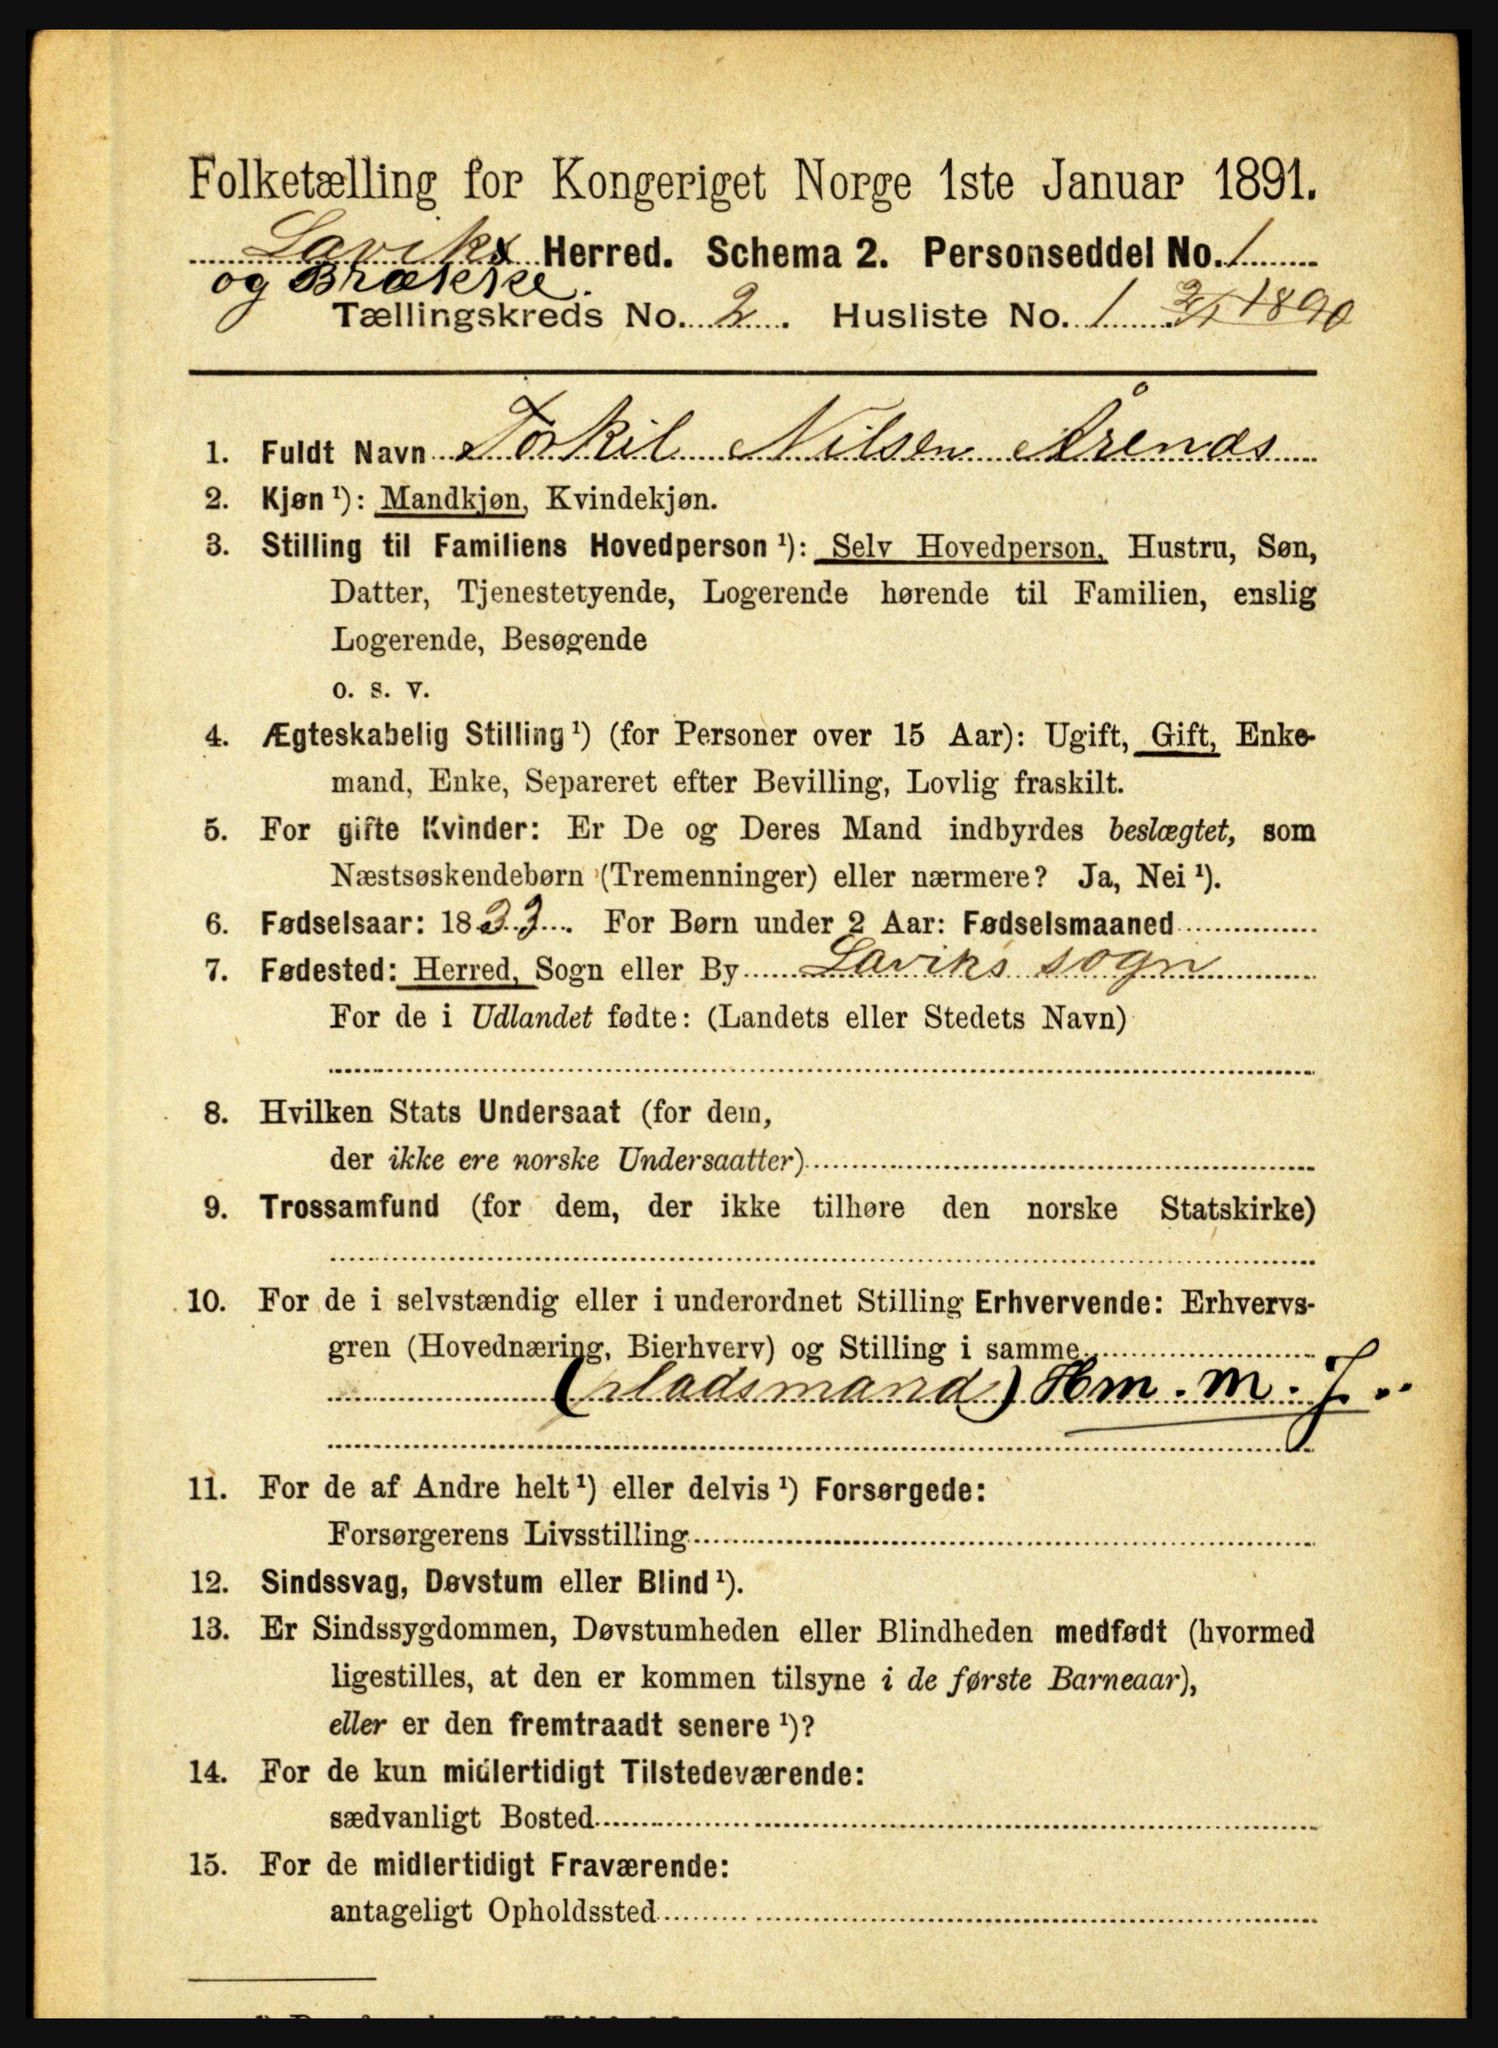 Folketælling for Kongeriget Norge 1ste Januar 1891.
Laviks Herred. Schema 2. Personseddel No. 1
og Brække.
Tællingskreds No. 2. Husliste No. 1 2/1 1890
1. Fuldt Navn Torkil Nilsen Årenæs
2. Kjøn ¹): Mandkjøn, Kvindekjøn.
3. Stilling til Familiens Hovedperson ¹): Selv Hovedperson, Hustru, Søn,
Datter, Tjenestetyende, Logerende hørende til Familien, enslig
Logerende, Besøgende
o. s. v.
4. Ægteskabelig Stilling ¹) (for Personer over 15 Aar): Ugift, Gift, Enke-
mand, Enke, Separeret efter Bevilling, Lovlig fraskilt.
5. For gifte Kvinder: Er De og Deres Mand indbyrdes beslægtet, som
Næstsøskendebørn (Tremenninger) eller nærmere? Ja, Nei ¹).
6. Fødselsaar: 1833. For Børn under 2 Aar: Fødselsmaaned
7. Fødested: Herred, Sogn eller By Laviks sogn
For de i Udlandet fødte: (Landets eller Stedets Navn)
8. Hvilken Stats Undersaat (for dem,
der ikke ere norske Undersaatter)
9. Trossamfund (for dem, der ikke tilhøre den norske Statskirke)
10. For de i selvstændig eller i underordnet Stilling Erhvervende: Erhvervs-
gren (Hovednæring, Bierhverv) og Stilling i samme
(pladsmand) Hm. m. J.
11. For de af Andre helt ¹) eller delvis ¹) Forsørgede:
Forsørgerens Livsstilling
12. Sindssvag, Døvstum eller Blind ¹).
13. Er Sindssygdommen, Døvstumheden eller Blindheden medfødt (hvormed
ligestilles, at den er kommen tilsyne i de første Barneaar),
eller er den fremtraadt senere ¹)?
14. For de kun midlertidigt Tilstedeværende:
sædvanligt Bosted
15. For de midlertidigt Fraværende:
antageligt Opholdssted